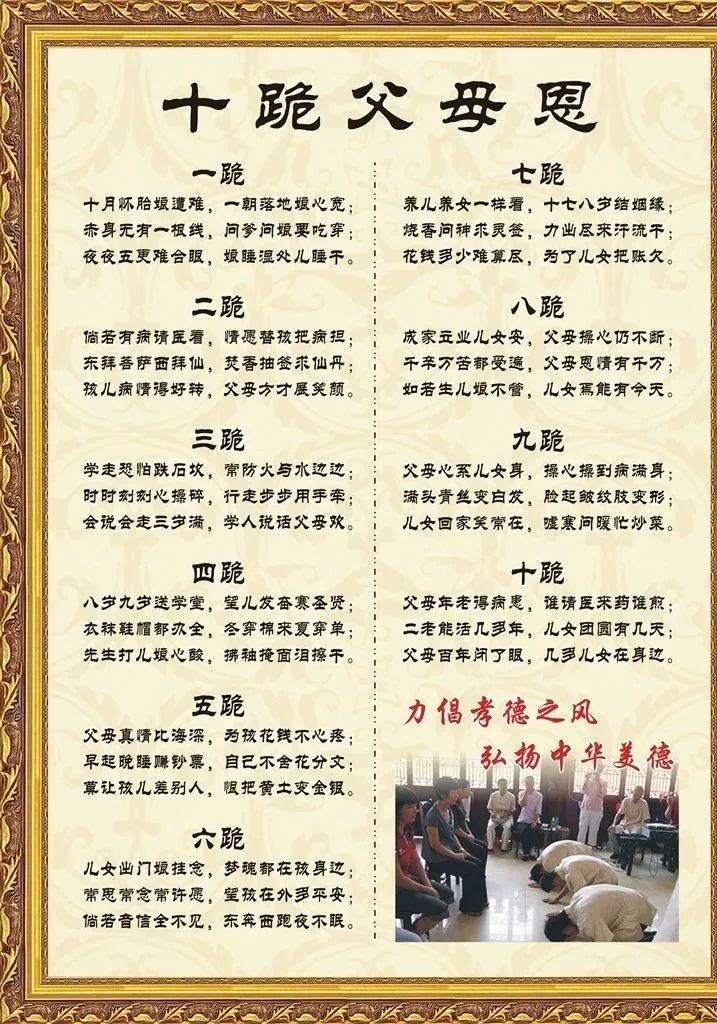 十跪父母恩
一跪
十月怀胎娘遭难，一朝落地娘心宽；
赤身无有一根线，问爹问娘要吃穿；
夜夜五更难合眼，娘睡湿处儿睡干。
二跪
倘若有病请医看，情愿替孩把病担；
东拜菩萨西拜仙，焚香抽签求仙丹；
孩儿病情得好转，父母方才展笑颜。
三跪
学走恐怕跌石坎，常防火与水边边；
时时刻刻心操碎，行走步步用手牵；
会说会走三岁满，学人说话父母欢。
四跪
八岁九岁送学堂，望儿发奋赛圣贤；
衣袜鞋帽都办全，冬穿棉来夏穿单；
先生打儿娘心酸，拂袖掩面泪擦干。
五跪
父母真情比海深，为孩花钱不心疼；
早起晚睡赚钞票，自己不舍花分文；
莫让孩儿差别人，恨把黄土变金银。
六跪
儿女出门娘挂念，梦魂都在孩身边；
常思常念常许愿，望孩在外多平安；
倘若音信全不见，东奔西跑夜不眠。
七跪
养儿养女一样看，十七八岁结姻缘；
烧香问神求灵签，力出尽来汗流干；
花钱多少难算尽，为了儿女把账欠。
八跪
成家立业儿女安，父母操心仍不断；
千辛万苦都受遍，父母恩情有千万；
如若生儿娘不管，儿女焉能有今天。
九跪
父母心系儿女身，操心操到病满身；
满头青丝变白发，脸起皱纹肢变形；
儿女回家笑常在，嘘寒问暖忙炒菜。
十跪
父母年老得病患，谁请医来药谁煎；
二老能活几多年，儿女团圆有几天；
父母百年闭了眼，几多儿女在身边。
力倡孝德之风
弘扬中华美德